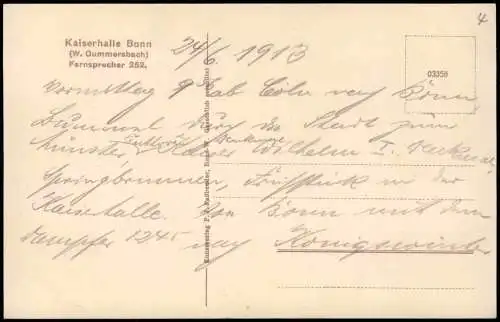 4
Kaiserhalle Bonn
(W. Gummersbach)
Fernsprecher 252.
24/6. 1913
03358
Vormittag 9 ab Cöln nach Bonn
Bummel durch die Stadt zum
Münster, Kaiser Wilhelm I. Denkmal
Springbrunnen, Frühstück in der
Kaiserhalle. Von Bonn mit dem
Dampfer 12 45 nach Königswinter